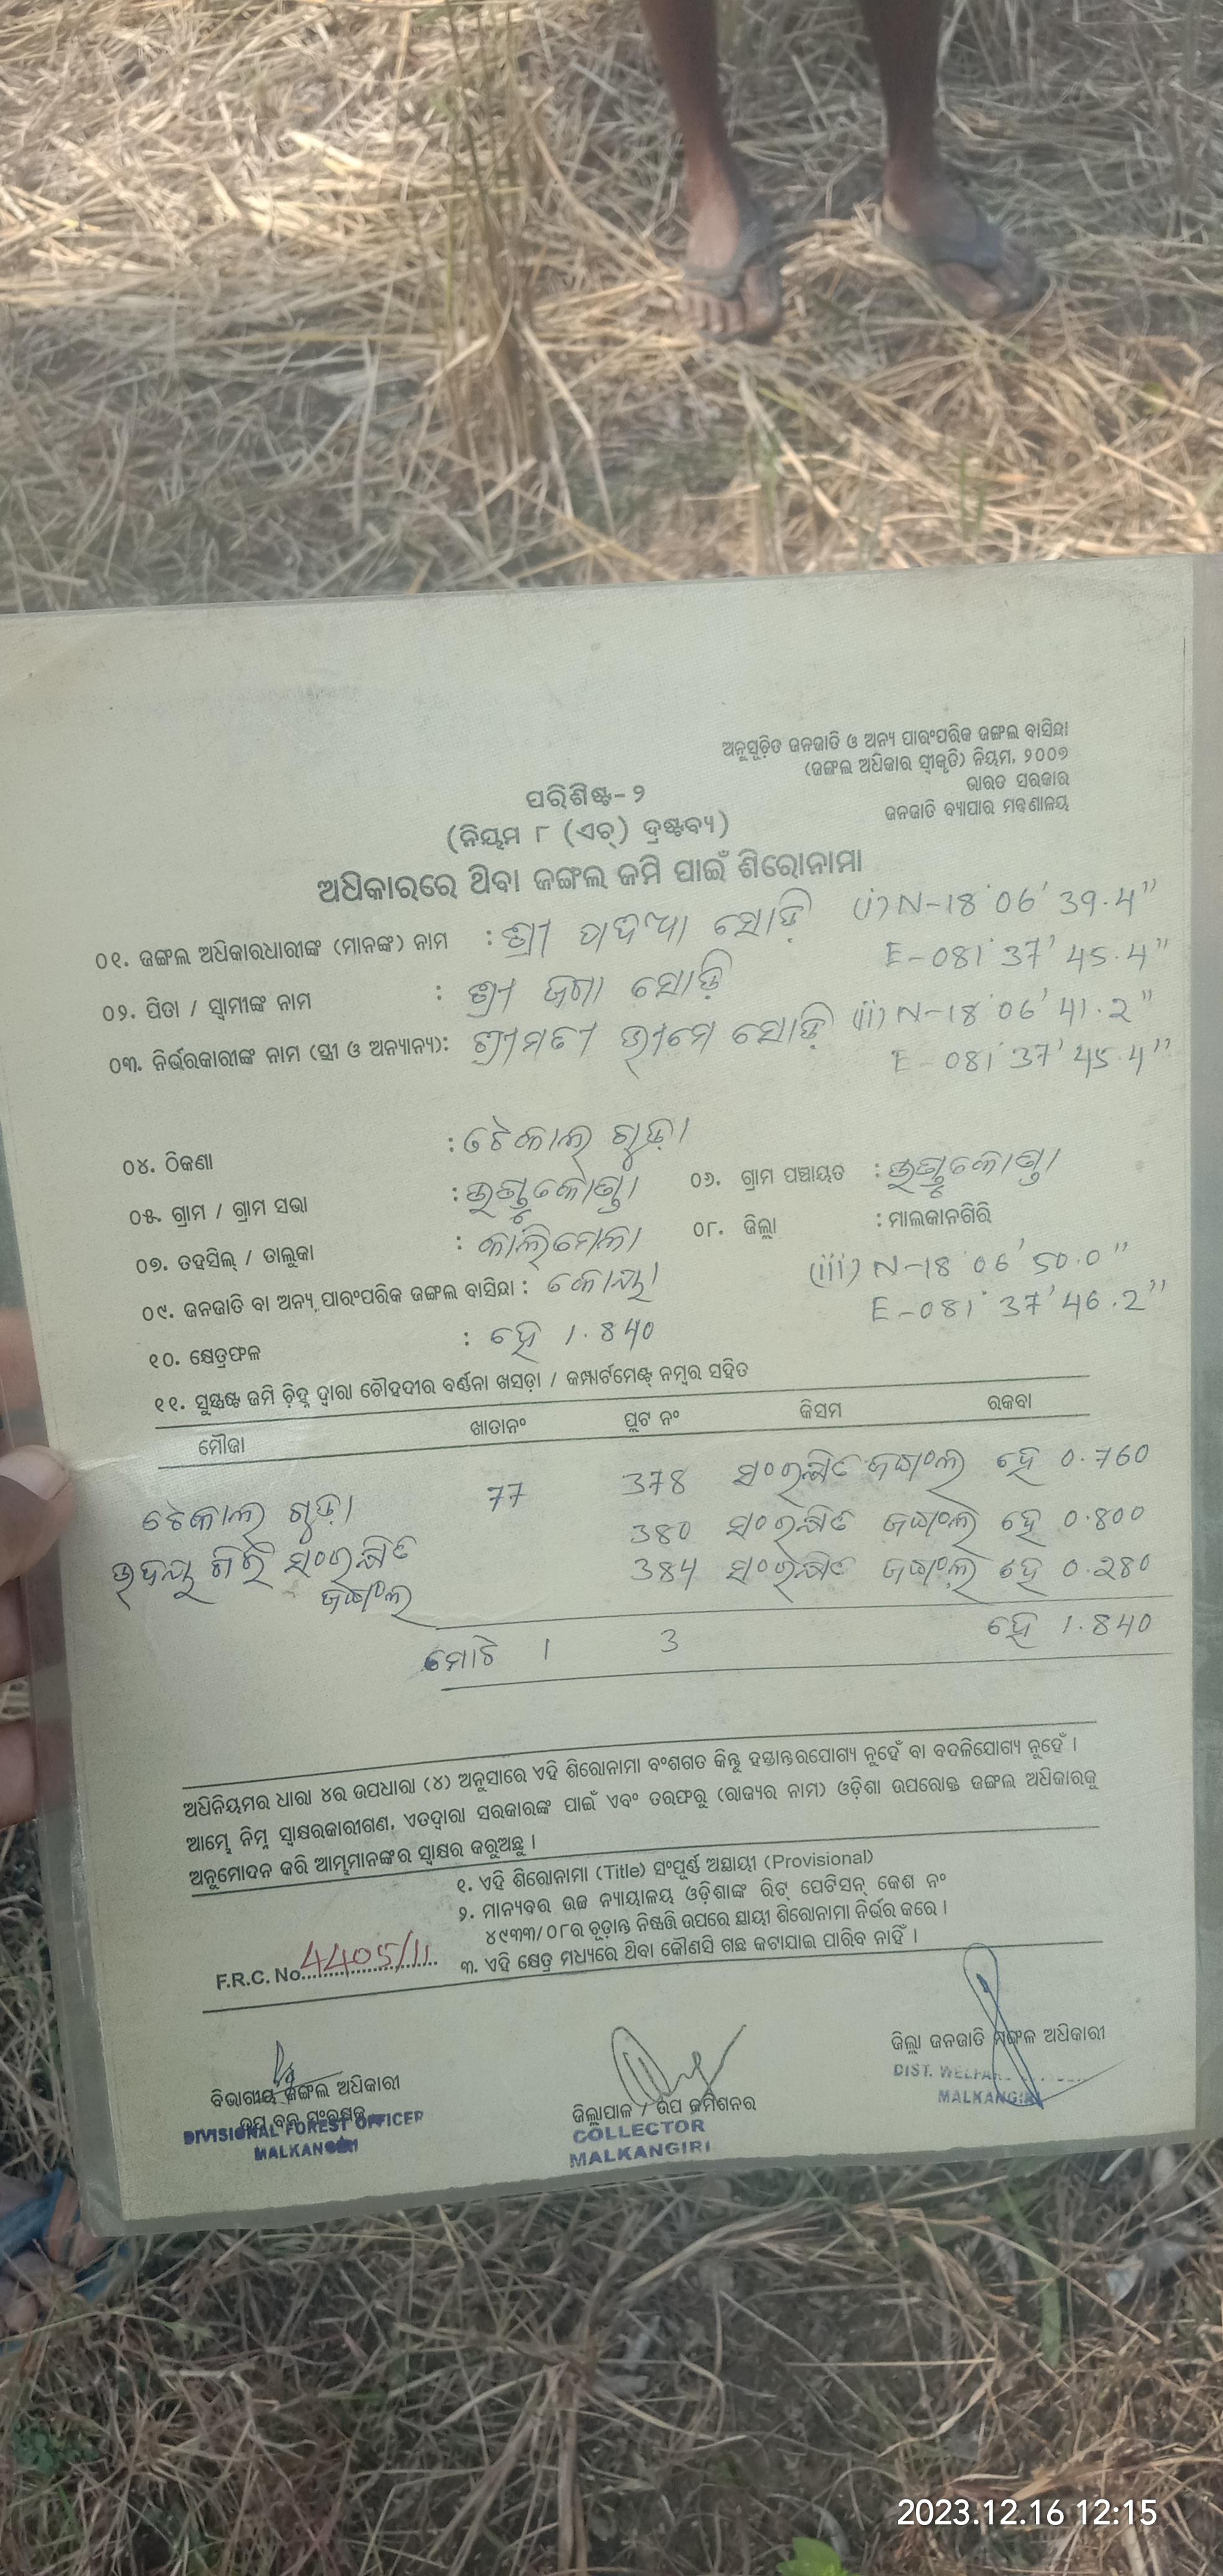 ଅନୁସୂଚିତ ଜନଜାତି ଓ ଅନ୍ୟ ପାରଂପରିକ ଜଙ୍ଗଲ ବାସିନ୍ଦା
(ଜଙ୍ଗଲ ଅଧିକାର ସ୍ଵୀକୃତି) ନିୟମ, ୨୦୦୭
ଭାରତ ସରକାର
ଜନଜାତି ବ୍ୟାପାର ମନ୍ତ୍ରଣାଳୟ
ପରିଶିଷ୍ଟ-୨
(ନିୟମ ୮ (ଏଚ୍) ଦ୍ରଷ୍ଟବ୍ୟ)
ଅଧିକାରରେ ଥିବା ଜଙ୍ଗଲ ଜମି ପାଇଁ ଶିରୋନାମା
୦୧. ଜଙ୍ଗଲ ଅଧିକାରଧାରୀଙ୍କ (ମାନଙ୍କ) ନାମ : ଶ୍ରୀ ସୋଡ଼ି (i) N-18°06'39.4"
E-081°37'45.4"
୦୨. ପିତା / ସ୍ୱାମୀଙ୍କ ନାମ : ଶ୍ରୀ ସୋଡ଼ି
୦୩. ନିର୍ଭରକାରୀଙ୍କ ନାମ (ସ୍ତ୍ରୀ ଓ ଅନ୍ୟାନ୍ୟ): ଶ୍ରୀମତୀ ଭୀମେ ସୋଡ଼ି (ii) N-18°06'41.2"
E-081°37'45.4"
୦୪. ଠିକଣା : ଟେକାଲ ଗୁଡ଼ା
୦୫. ଗ୍ରାମ / ଗ୍ରାମ ସଭା : ୦୬. ଗ୍ରାମ ପଞ୍ଚାୟତ :
୦୭. ତହସିଲ୍ / ତାଲୁକା : କାଲିମେଲା ୦୮. ଜିଲ୍ଲା : ମାଲକାନଗିରି
୦୯. ଜନଜାତି ବା ଅନ୍ୟ ପାରଂପରିକ ଜଙ୍ଗଲ ବାସିନ୍ଦା : କୋୟା (iii) N-18°06'50.0"
E-081°37'46.2"
୧୦. କ୍ଷେତ୍ରଫଳ : ହେ 1.840
୧୧. ସୁସ୍ପଷ୍ଟ ଜମି ଚିହ୍ନ ଦ୍ଵାରା ଚୌହଦୀର ବର୍ଣ୍ଣନା ଖସଡ଼ା / କମ୍ପାର୍ଟମେଣ୍ଟ୍ ନମ୍ବର ସହିତ
ମୌଜା ଖାତାନଂ ପ୍ଲଟ ନଂ କିସମ ରକବା
ଟେକାଲ ଗୁଡ଼ା 77 378 ସଂରକ୍ଷିତ ଜଙ୍ଗଲ ହେ 0.760
380 ସଂରକ୍ଷିତ ଜଙ୍ଗଲ ହେ 0.800
ଉଦୟ ଗିରି ସଂରକ୍ଷିତ 384 ସଂରକ୍ଷିତ ଜଙ୍ଗଲ ହେ 0.280
ଜଙ୍ଗଲ
ମୋଟ 1 3 ହେ 1.840
ଅଧିନିୟମର ଧାରା ୪ର ଉପଧାରା (୪) ଅନୁସାରେ ଏହି ଶିରୋନାମା ବଂଶଗତ କିନ୍ତୁ ହସ୍ତାନ୍ତରଯୋଗ୍ୟ ନୁହେଁ ବା ବଦଳିଯୋଗ୍ୟ ନୁହେଁ ।
ଆମ୍ଭେ ନିମ୍ନ ସ୍ୱାକ୍ଷରକାରୀଗଣ, ଏତଦ୍ଵାରା ସରକାରଙ୍କ ପାଇଁ ଏବଂ ତରଫରୁ (ରାଜ୍ୟର ନାମ) ଓଡ଼ିଶା ଉପରୋକ୍ତ ଜଙ୍ଗଲ ଅଧିକାରକୁ
ଅନୁମୋଦନ କରି ଆମ୍ଭମାନଙ୍କର ସ୍ୱାକ୍ଷର କରୁଅଛୁ ।
୧. ଏହି ଶିରୋନାମା (Title) ସଂପୂର୍ଣ୍ଣ ଅସ୍ଥାୟୀ (Provisional)
୨. ମାନ୍ୟବର ଉଚ୍ଚ ନ୍ୟାୟାଳୟ ଓଡ଼ିଶାଙ୍କ ରିଟ୍ ପେଟିସନ୍ କେଶ ନଂ
୪୯୩୩/୦୮ର ଚୂଡ଼ାନ୍ତ ନିଷ୍ପତ୍ତି ଉପରେ ସ୍ଥାୟୀ ଶିରୋନାମା ନିର୍ଭର କରେ ।
୩. ଏହି କ୍ଷେତ୍ର ମଧ୍ୟରେ ଥିବା କୌଣସି ଗଛ କଟାଯାଇ ପାରିବ ନାହିଁ ।
F.R.C. No. 4405/11
ବିଭାଗୀୟ ଜଙ୍ଗଲ ଅଧିକାରୀ
ଉପ ବନ ସଂରକ୍ଷକ
DIVISIONAL FOREST OFFICER
MALKANGIRI
ଜିଲ୍ଲାପାଳ / ଉପ କମିଶନର
COLLECTOR
MALKANGIRI
ଜିଲ୍ଲା ଜନଜାତି ମଙ୍ଗଳ ଅଧିକାରୀ
DIST. WELFARE
MALKANGIRI
2023.12.16 12:15